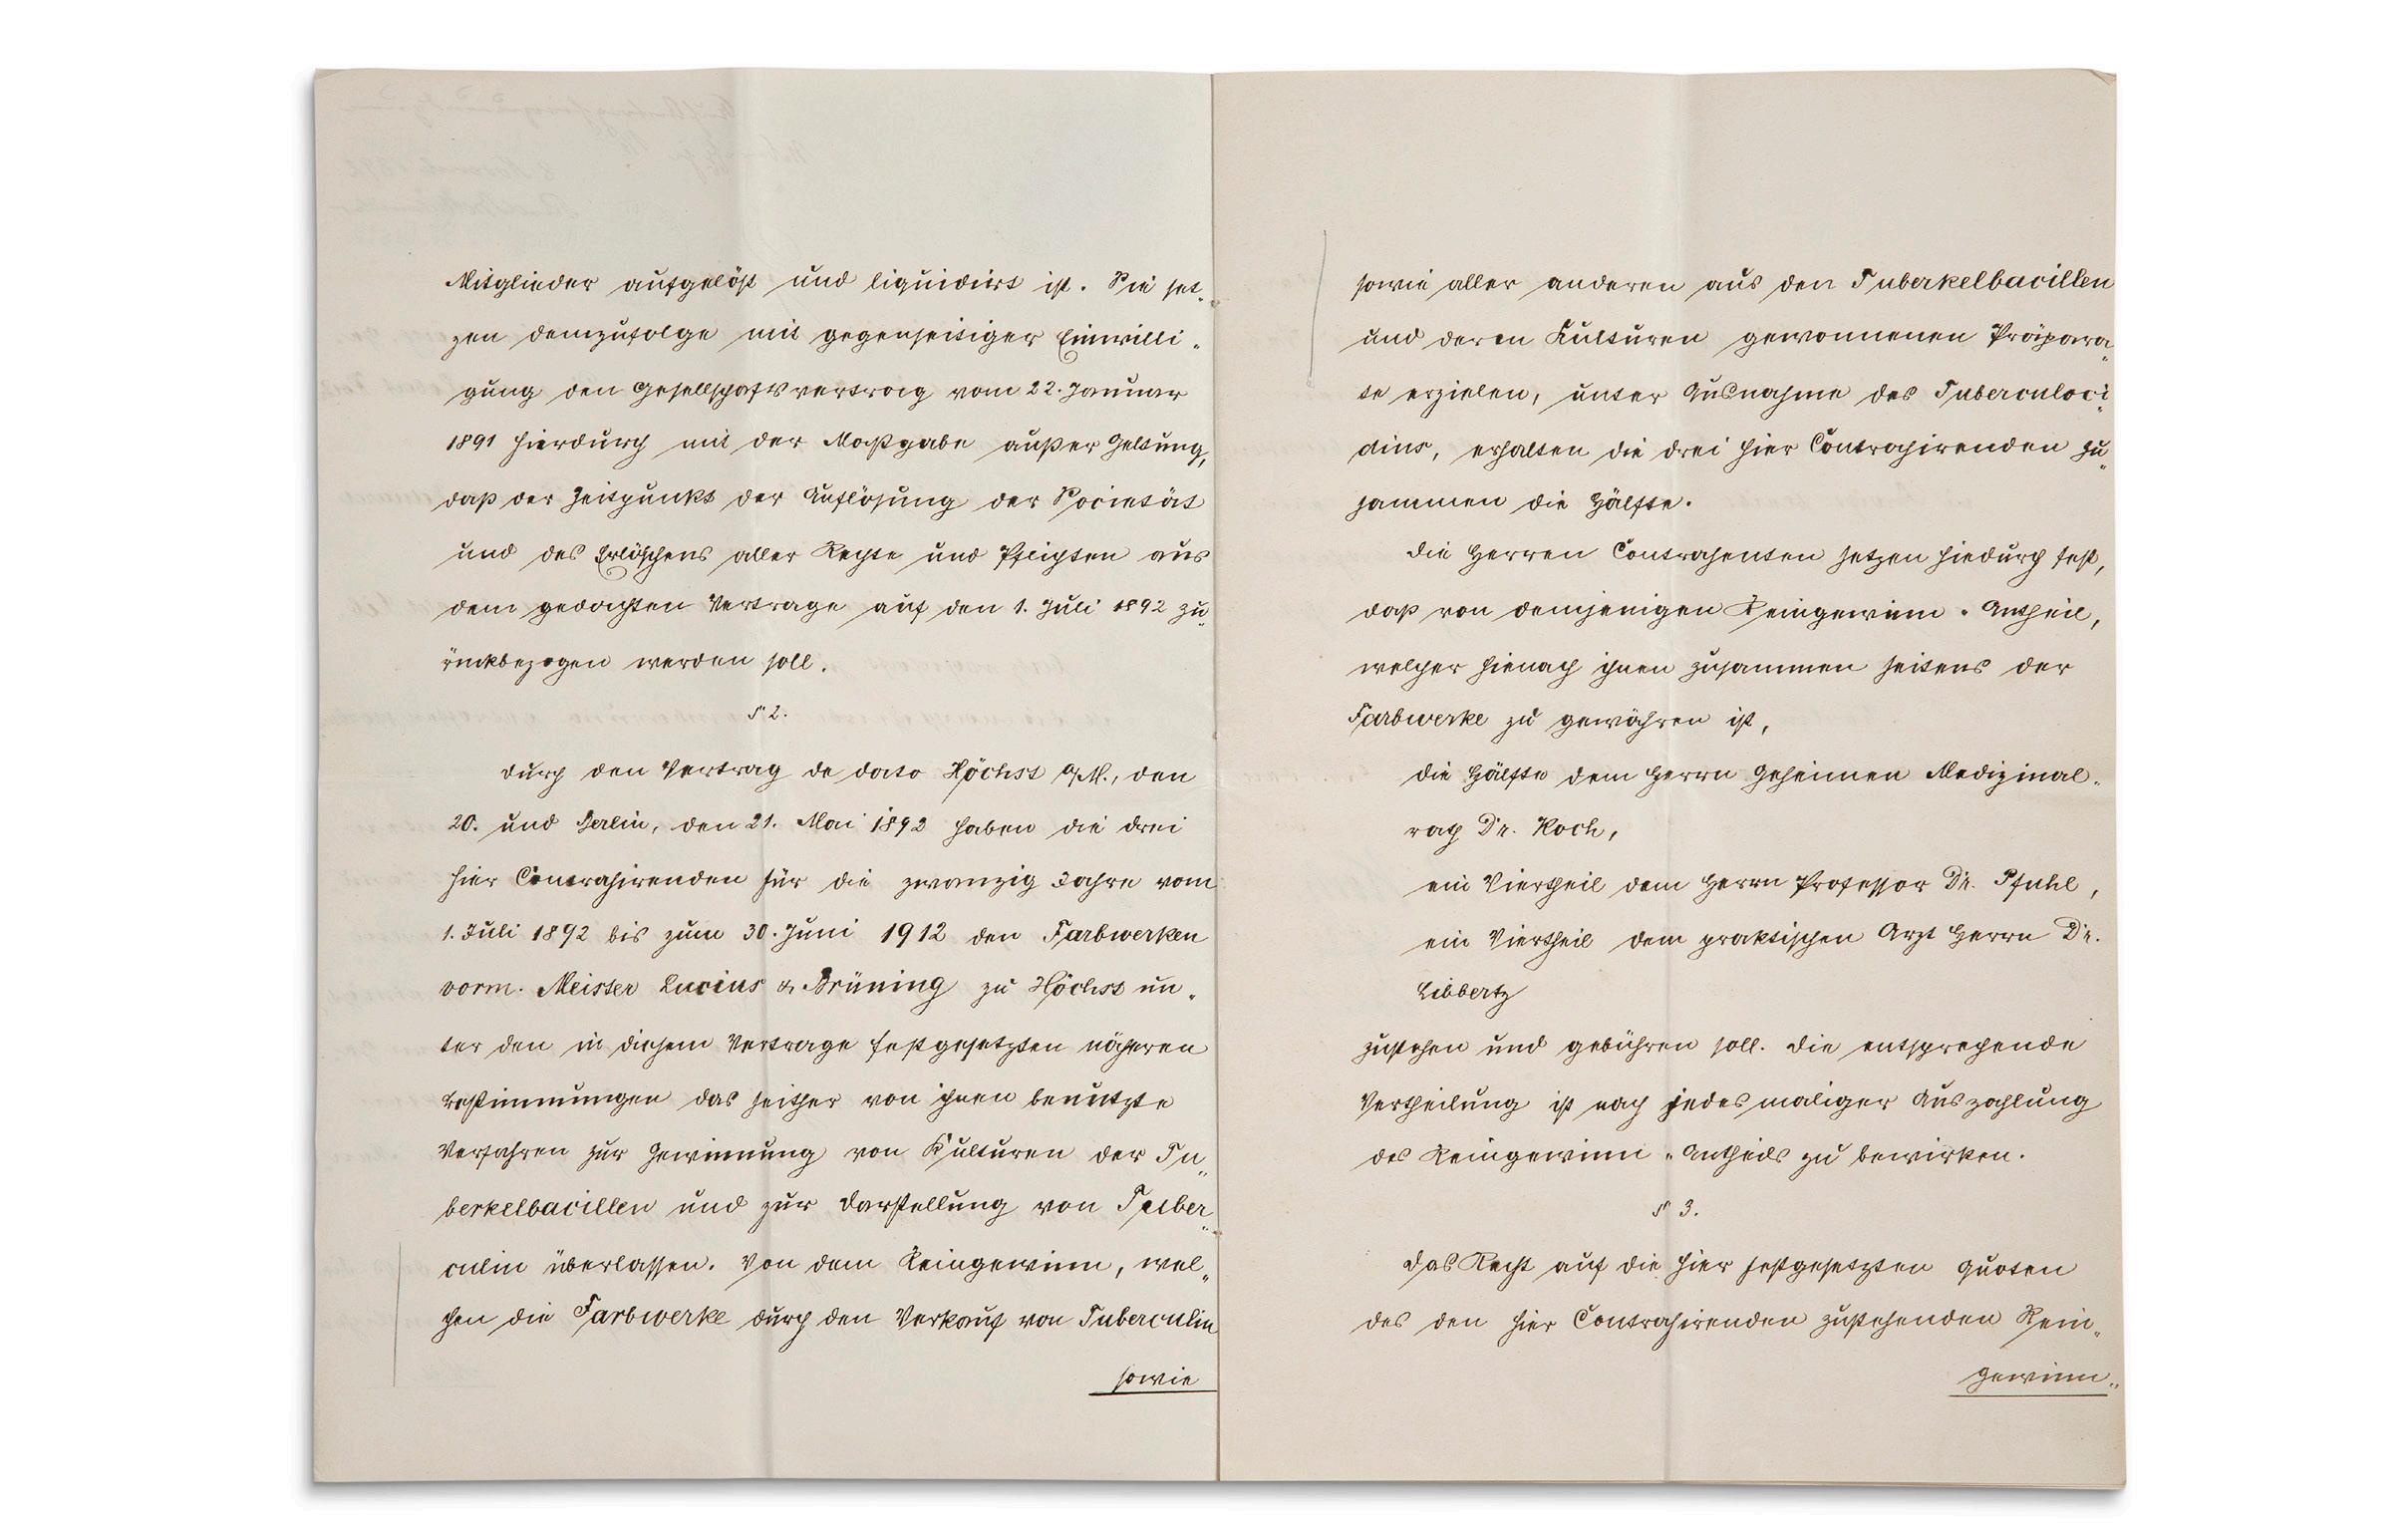 Mitglieder aufgelöst und liquidirt ist. Sie set-
zen demzufolge mit gegenseitiger Einwilli-
gung den Gesellschaftsvertrag vom 22. Januar
1891 hierdurch mit der Maßgabe außer Geltung,
daß der Zeitpunkt der Auflösung der Societät
und des Erlöschens aller Rechte und Pflichten aus
dem gedachten Vertrage auf den 1. Juli 1892 zu-
rückbezogen werden soll.
§ 2.
Durch den Vertrag de dato Höchst a/M., den
20. und Berlin, den 21. Mai 1892 haben die drei
hier Contrahirenden für die zwanzig Jahre vom
1. Juli 1892 bis zum 30. Juni 1912 den Farbwerken
vorm. Meister Lucius & Brüning zu Höchst un-
ter den in diesem Vertrage festgesetzten näheren
Bestimmungen das seither von ihnen benutzte
Verfahren zur Gewinnung von Kulturen der Tu-
berkelbacillen und zur Darstellung von Tuber-
culin überlassen. Von dem Reingewinn, wel-
chen die Farbwerke durch den Verkauf von Tuberculin
sowie
sowie aller anderen aus den Tuberkelbacillen
und deren Kulturen gewonnenen Präpara-
te erzielen, unter Ausnahme des Tuberculoci-
dins, erhalten die drei hier Contrahirenden zu-
sammen die Hälfte.
Die Herren Contrahenten setzen hiedurch fest,
daß von demjenigen Reingewinn-Antheil,
welcher hienach ihnen zusammen seitens der
Farbwerke zu gewähren ist,
die Hälfte dem Herrn Geheimen Medizinal-
rath Dr. Koch,
ein Viertheil dem Herrn Professor Dr. Pfuhl,
ein Viertheil dem praktischen Arzt Herrn Dr.
Libbertz
zustehen und gebühren soll. Die entsprechende
Vertheilung ist nach jedesmaliger Auszahlung
des Reingewinn-Antheils zu bewirken.
§ 3.
Das Recht auf die hier festgesetzten Quoten
des den hier Contrahirenden zustehenden Rein-
gewinn-